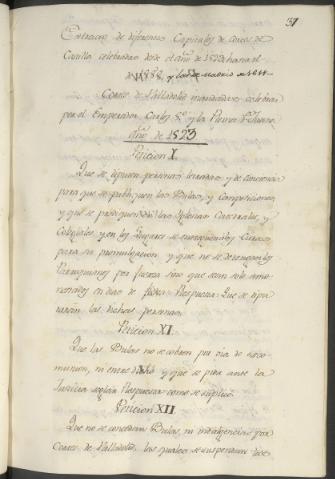 37
Extractos de diferentes Capitulos de Cortes de
Castilla celebradas desde el año de 1523 hasta el
de 1558, y las de Madrid de 1611
Cortes de Valladolid mandadas celebrar
por el Emperador Carlos 5º y la Reina Dª Juana
año de 1523
Peticion X.
Que se diputen personas letradas y de conciencia
para que se publiquen las Bulas, y Composiciones
y que se prediquen en las Iglesias Catedrales, y
Colegiales, y en los Lugares se
para su promulgacion y que no se detengan los
por fuerza sino que sean solo amo-
nestados en dias de fiesta. Respuesta. Que se dipu-
taran las dichas personas.
Peticion XI.
Que las Bulas no se cobren por via de
y que se pida ante la
Justicia Respuesta como se suplica.
Peticion XII
Que no se concedan Bulas, ni indulgencias por
Cortes de Valladolid, las quales se suspendan